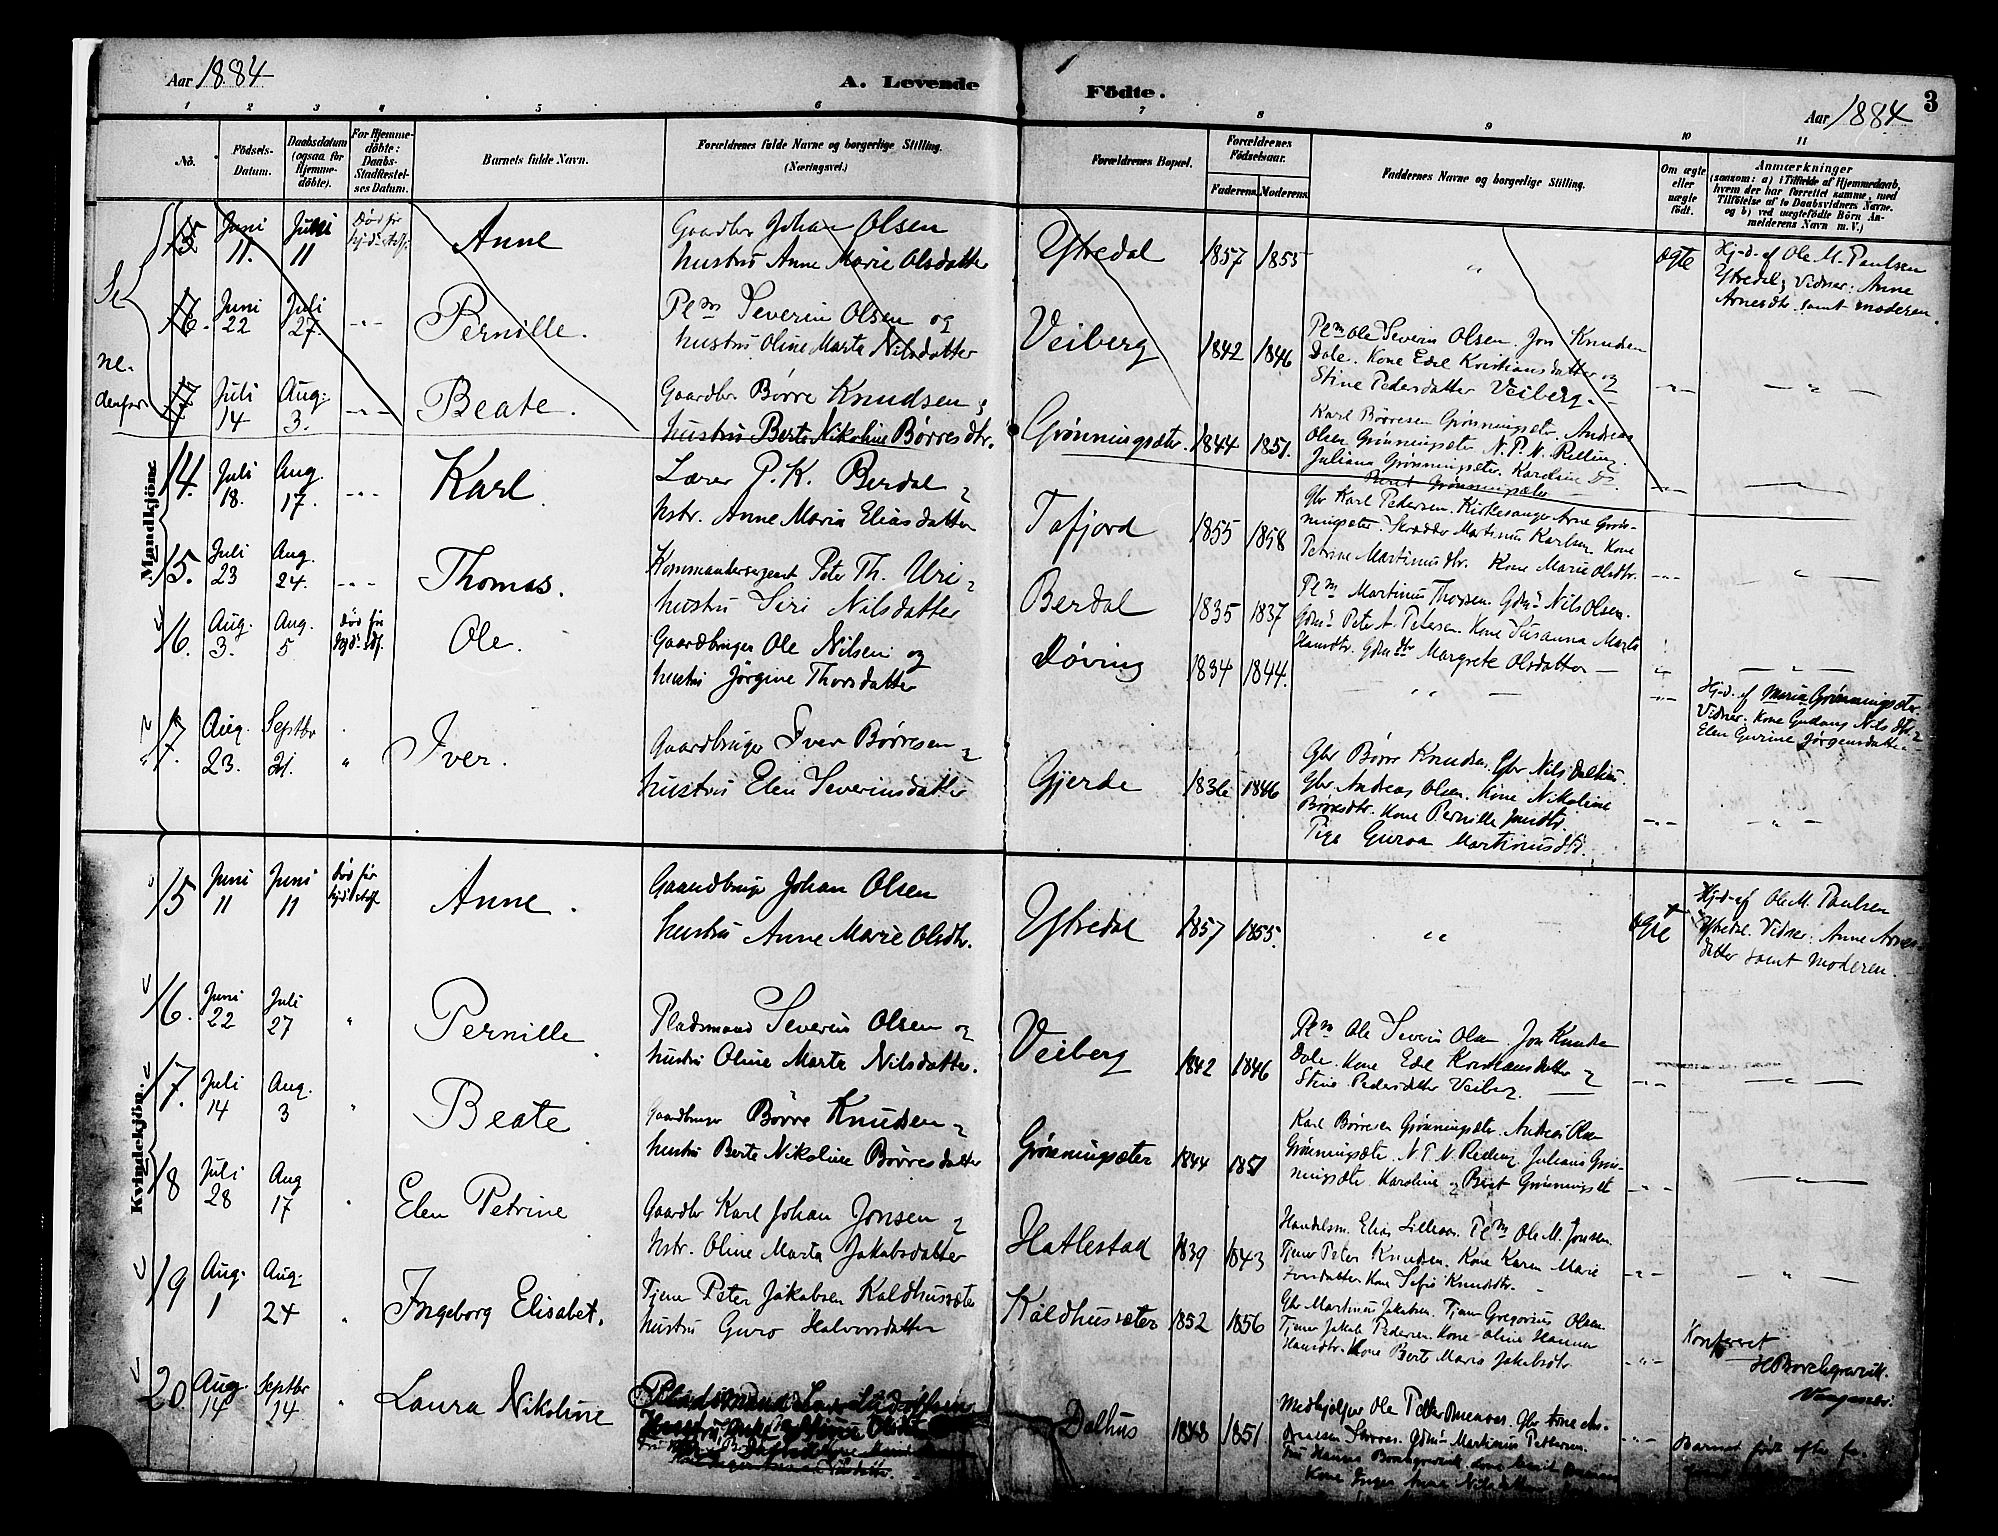 Aar 1884
A. Levende
Födte.
Aar 1884
3
1 2 3 4 5 6 7 8 9 10 11
No.
Födsels-Datum.
Daabsdatum (ogsaa for Hjemme-döbte).
For Hjemme-döbte: Daabs-Stadfæstel-ses Datum.
Barnets fulde Navn.
Forældrenes fulde Navne og borgerlige Stilling. (Næringsvei.)
Forældrenes Bopæl.
Forældrenes Födselsaar.
Faderens. Moderens.
Faddernes Navne og borgerlige Stilling.
Om ægte eller uægte födt.
Anmærkninger
(saasom: a) i Tilfælde af Hjemmedaab, hvem der har forrettet samme, med Tilföielse af to Daabsvidners Navne. og b) ved uægtefödte Börn An-melderens Navn m.V.)
Se
ne-
denfor
15 Juni 11. Juni 11 Død før Anne
Gaardbr Johan Olsen
hustru Anne Marie Olsdatter
Ytredal 1857 1855 " ægte
Hj-d. af Ole M. Paulsen
Ytredal; Vidner: Anne
Arnesdtr. samt moderen.
16. Juni 22 Juli 27. -"- Pernille.
Plm Severin Olsen og
hustru Oline Marta Nilsdatter
Veiberg 1842 1846
Plm Ole Severin Olsen. Jon Knudsen
Dale. Kone Edel Kristiansdatter og
Stine Pedersdatter Veiberg. -"-
17 Juli 14 Aug. 3. -"- Beate.
Gaardbr. Börre Knudsen &
hustru Berte Nikoline Børresdtr.
Grønningsæter. 1844 1851.
Karl Børresen Grønningsæter. Andreas
Olsen Grønningsæter N. P. N. Relling.
Juliana Grønningsæter. Karoline Do.
Beret Grønningsæter
Mandkjön.
14. Juli 18. Aug. 17. -"- Karl.
Lærer P. K. Berdal &
hstr. Anne Maria Eliasdatter
Tafjord 1855 1858
Gbr Karl Pedersen. Kirkesanger Arne Grøn-
ningsæter. Skrædder Martinus Karlsen. Kone
Petrine Martinusdtr. Kone Marie Olsdtr. -"-
15. Juli 23 Aug. 24. -"- Thomas.
Kommandersergent Peter Th. Uri &
hustru Siri Nilsdatter
Berdal 1835 1837
Plm Martinus Thorsen. Gdm. Nils Olsen.
Gdm. Peter A. Petersen. Kone Susanna Marta
Hansdtr. Gdmdtr Margrete Olsdatter
16. Aug. 3. Aug. 5 Død før Ole.
Gaardbruger Ole Nilsen og
hustru Jørgine Thorsdatter
Døving 1834 1844. -"-
Hj-d. af Maria Grønningsæter.
Vidner. Kone Gudany Nilsdtr. &
Elen Gurine Jørgensdatter
17. Aug. 23. Septbr 21. " Iver.
Gaardbruger Iver Børresen &
hustru Elen Severinsdatter
Gjerde 1836 1846
Gbr Børre Knudsen. Gbr. Nils Dalhus.
Gbr. Andreas Olsen. Kone Nikoline
Børresdtr. Kone Pernille Jonsdtr.
Pige Guroa Martinusdtr. -"-
Kvindekjön.
15 Juni 11 Juni 11 Død før Anne.
Gaardbruger Johan Olsen
hustru Anne Marie Olsdtr.
Ytredal 1857 1855. " ægte
Hj-d-af Ole M. Paulsen
Ytredal. Vidner: Anne Arnes-
datter samt moderen.
16. Juni 22 Juli 27 " Pernille
Pladsmand Severin Olsen og
hustru Oline Marta Nilsdatter.
Veiberg 1842 1846
Plm Ole Severin Olsen Jon Knudsen
Dale. Kone Edel Kristiansdatter &
Stine Pedersdatter Veiberg. -"-
17. Juli 14 Aug. 3 " Beate.
Gaardbruger Børre Knudsen &
hustru Berte Nikoline Børresdatter
Grønningsæter 1844 1851
Karl Børresen Grønningsæter. Andreas Olsen
Grønningsæter N. P. N. Relling Juliana Grøn-
ningsæter Karoline og Beret Grønningsæt -"-
18 Juli 28 Aug 17 " Elen Petrine
Gaardbr Karl Johan Jonsen &
hstr. Oline Marta Jakobsdatter
Hatlestad 1839 1843
Handelsm. Elias Lillaas. Plm Ole M. Jonsen.
Tjener Peter Knudsen. Kone Karen Marie
Iversdatter Kone Sofie Knudsdtr. -"-
19 Aug. 1 Aug. 24 " Ingeborg Elisabet.
Tjener Peter Jakobsen Kaldhussæter
hustru Guro Halvorsdatter
Kaldhussæter 1852 1856
Gbr Martinus Jakobsen. Tjener Gregorius Olsen.
Tjener Jakob Pedersen. Kone Oline Hanna
Hansdtr. Kone Berte Maria Jakobsdtr. -"-
Konfereret
20. Aug. 14 Septbr 24 " Laura Nikoline
Dalhus 1848 1851
Medhjelper Ole Petter
Gdm. Martinus Pettersen.
Kone Inger Anna Nilsdatter
Barnet født efter fa-